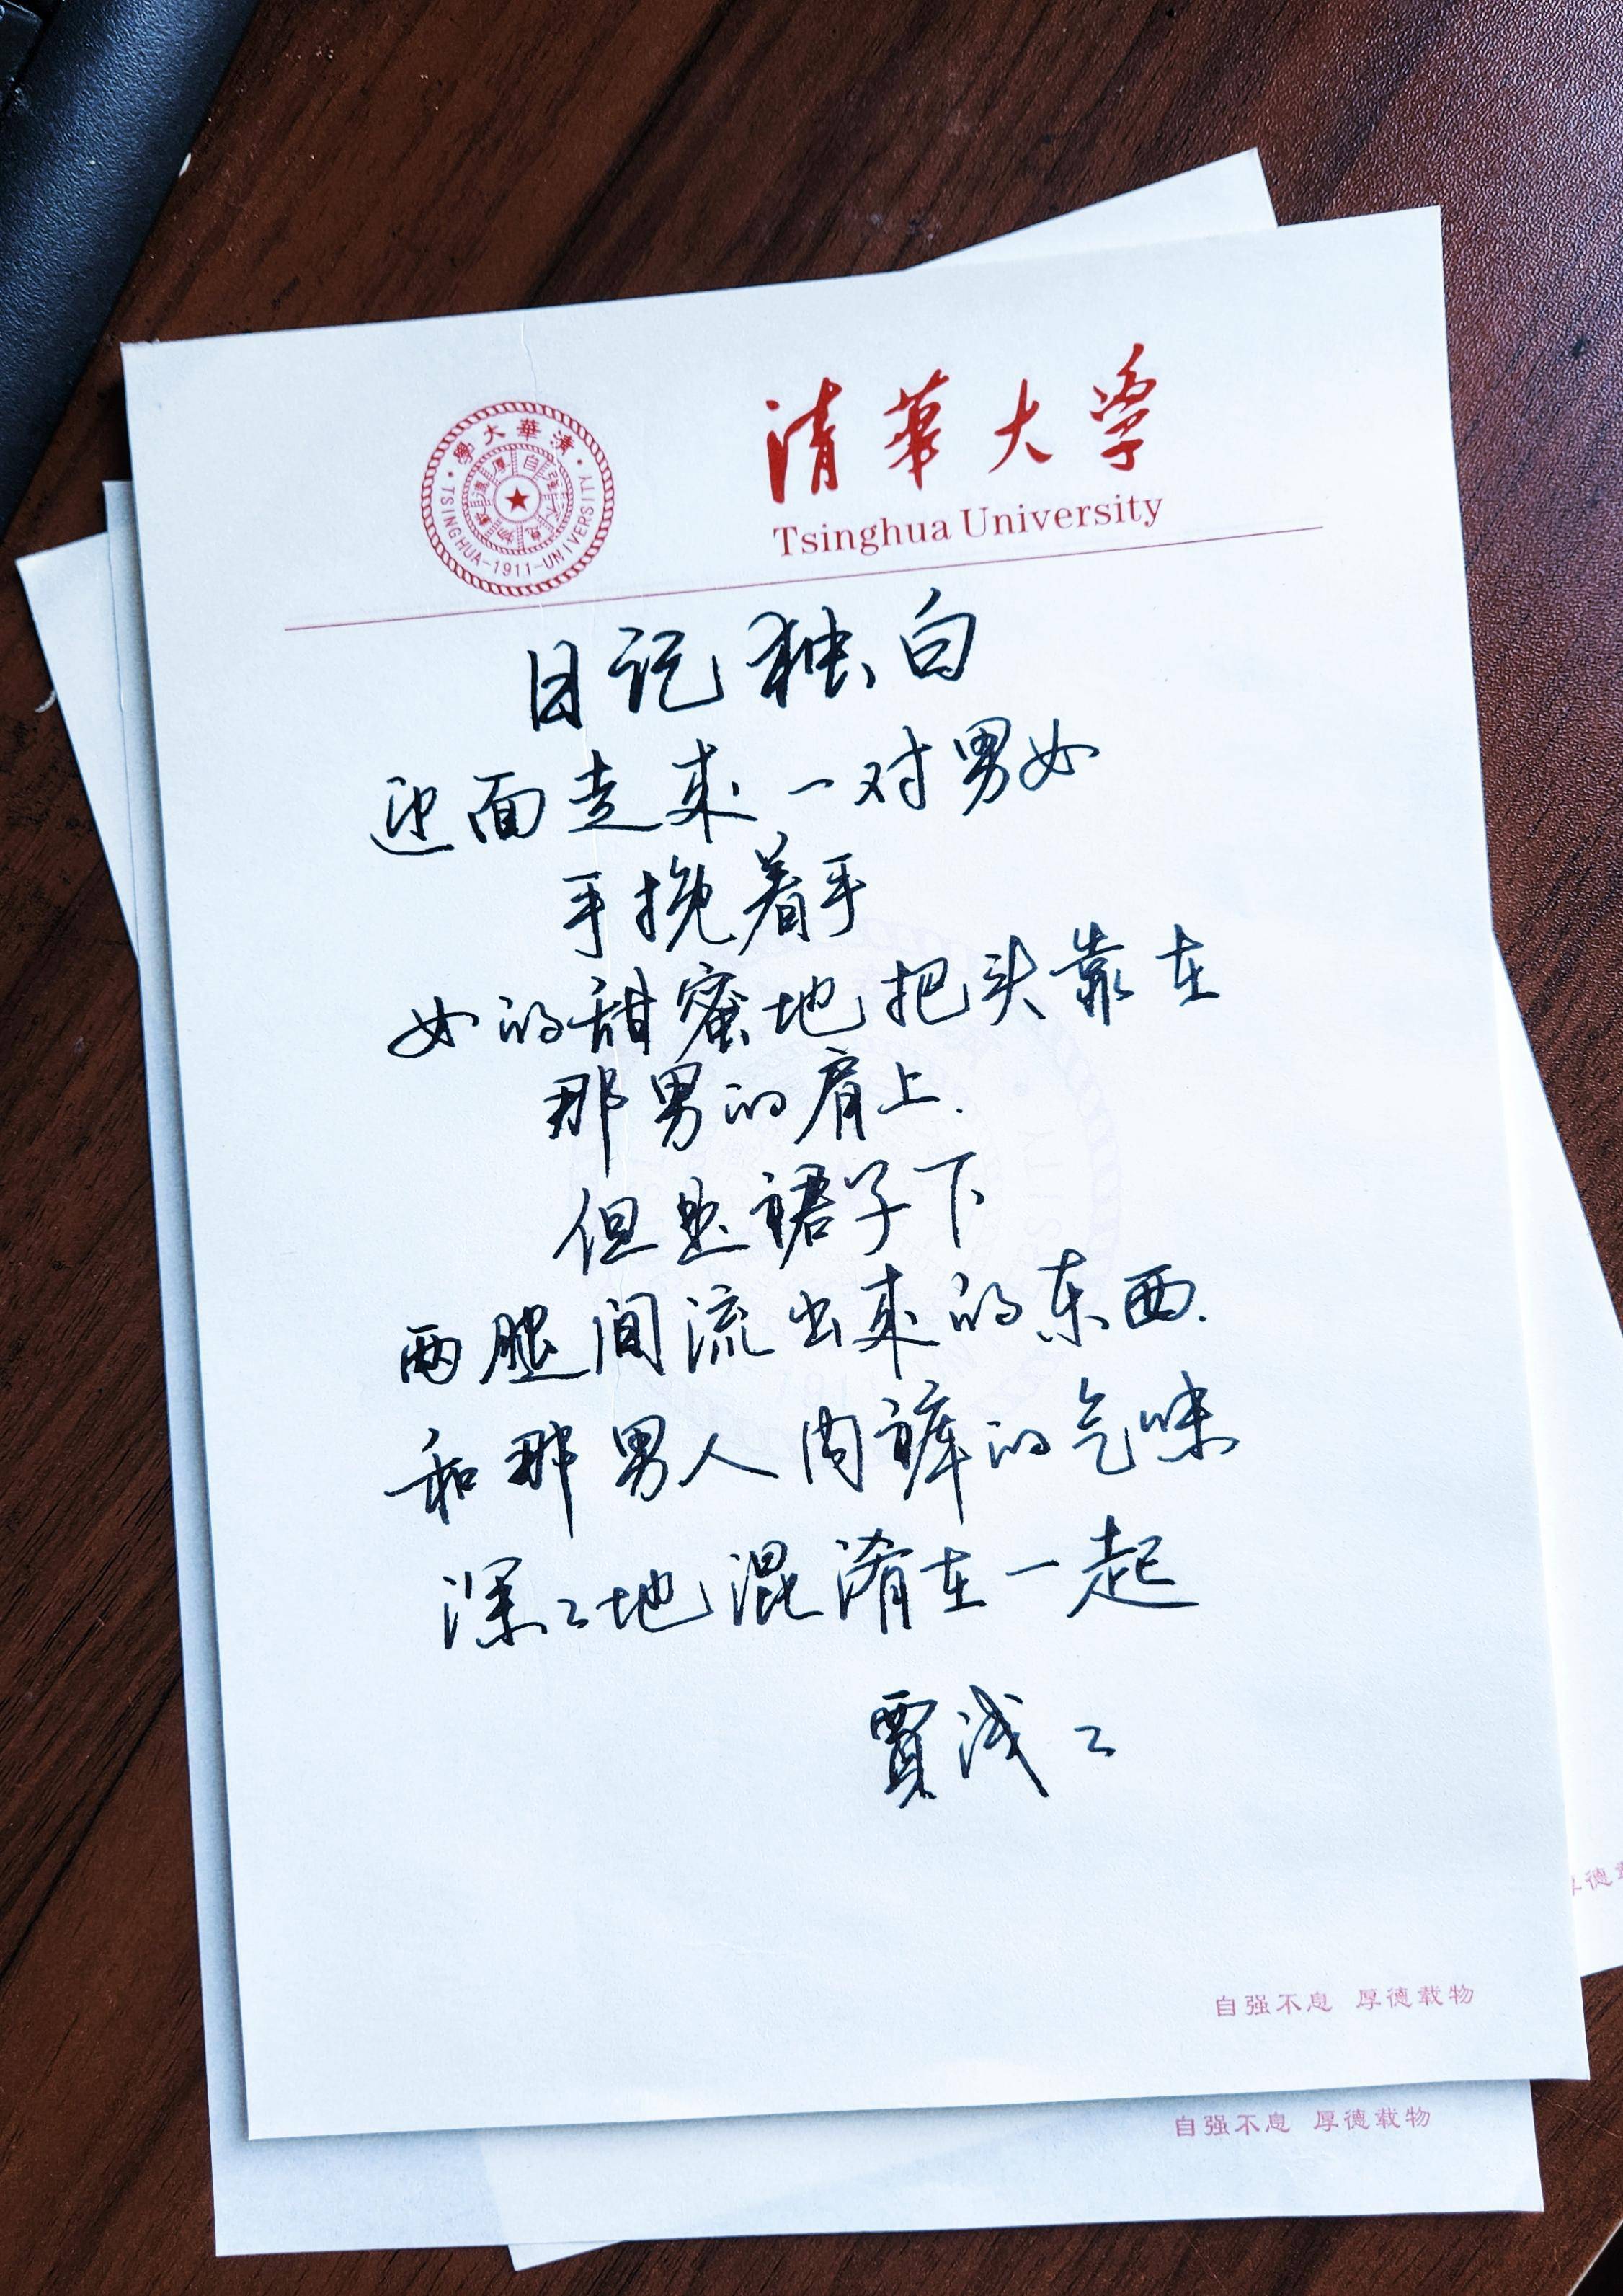 清華大學
Tsinghua University
清華大學
TSINGHUA-1911-UNIVERSITY
自强不息
厚德载物
日记独白
迎面走来一对男女
手挽着手
女的甜蜜地把头靠在
那男的肩上.
但是裙子下
两腿间流出来的东西.
和那男人内裤的气味
深々地混淆在一起
贾浅々
厚德载
自强不息 厚德载物
自强不息 厚德载物